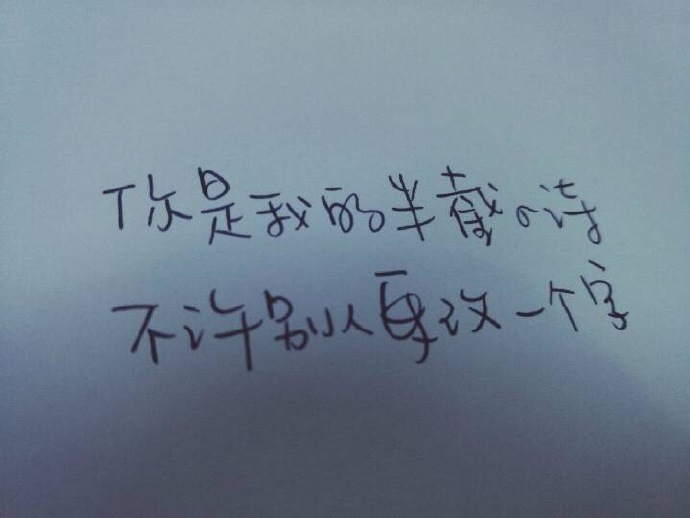 你是我的半截的诗
不许别人更改一个字